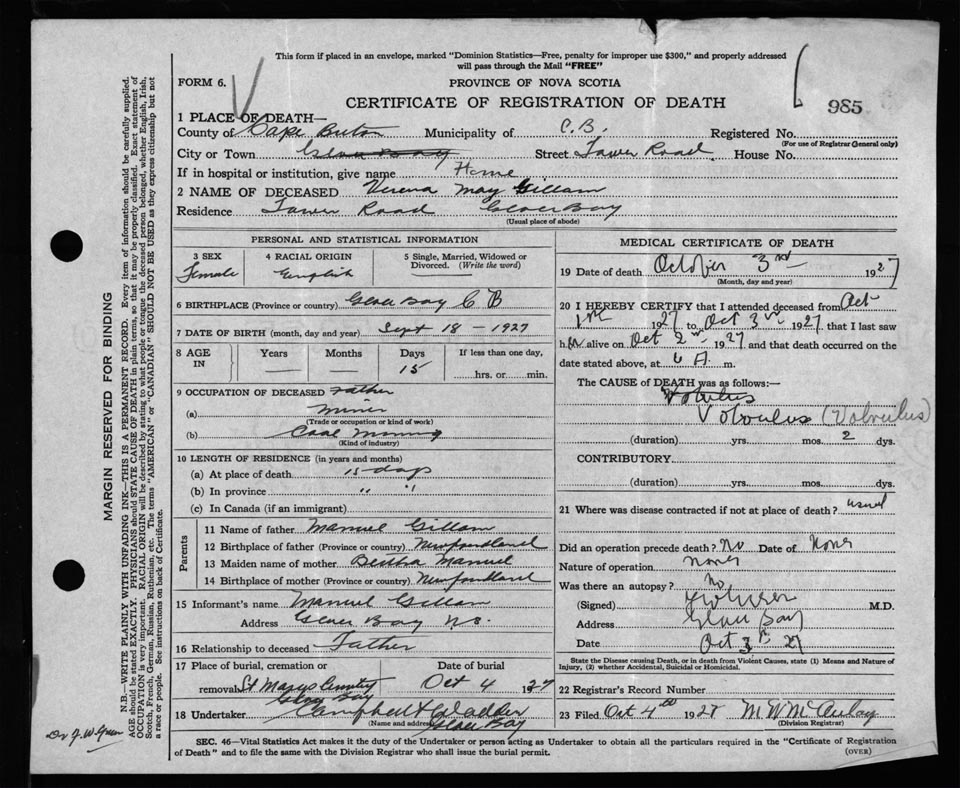 This form if placed in an envelope, marked "Dominion Statistics—Free, penalty for improper use $300," and properly addressed
will pass through the Mail "FREE"
FORM 6.
PROVINCE OF NOVA SCOTIA
CERTIFICATE OF REGISTRATION OF DEATH
985
1 PLACE OF DEATH—
County of Cape Breton Municipality of C.B. Registered No.
(For use of Registrar General only)
City or Town Glace Bay Street Tower Road House No.
If in hospital or institution, give name Home
2 NAME OF DECEASED Verena May Gillam
Residence Tower Road Glace Bay
(Usual place of abode)
PERSONAL AND STATISTICAL INFORMATION
3 SEX Female
4 RACIAL ORIGIN English
5 Single, Married, Widowed or Divorced. (Write the word)
6 BIRTHPLACE (Province or country) Glace Bay C B
7 DATE OF BIRTH (month, day and year) Sept 18 - 1927
8 AGE IN
Years —
Months —
Days 15
If less than one day,
hrs. or min.
9 OCCUPATION OF DECEASED Father
(a) Miner
(Trade or occupation or kind of work)
(b) Coal Mining
(Kind of industry)
10 LENGTH OF RESIDENCE (in years and months)
(a) At place of death 15 days
(b) In province " "
(c) In Canada (if an immigrant)
Parents
11 Name of father Manuel Gillam
12 Birthplace of father (Province or country) Newfoundland
13 Maiden name of mother Bertha Manuel
14 Birthplace of mother (Province or country) Newfoundland
15 Informant's name Manuel Gillam
Address Glace Bay N.S.
16 Relationship to deceased Father
17 Place of burial, cremation or removal St Marys Cemetery Glace Bay
Date of burial Oct 4 1927
18 Undertaker Campbell &
(Name and address) Glace Bay
MEDICAL CERTIFICATE OF DEATH
19 Date of death October 3rd 1927
(Month, day and year)
20 I HEREBY CERTIFY that I attended deceased from Oct
1st 1927 to Oct 3rd 1927 that I last saw
her alive on Oct 2nd 1927 and that death occurred on the
date stated above, at 6 A. m.
The CAUSE of DEATH was as follows:—
Volvulus
Volvulus (Volvulus)
(duration) yrs. mos. 2 dys.
CONTRIBUTORY
(duration) yrs. mos. dys.
21 Where was disease contracted if not at place of death? usual
Did an operation precede death? No Date of None
Nature of operation None
Was there an autopsy? No
(Signed) M.D.
Address Glace Bay
Date Oct 3rd 27
State the Disease causing Death, or in death from Violent Causes, state (1) Means and Nature of
Injury, (2) whether Accidental, Suicidal or Homicidal.
22 Registrar's Record Number
23 Filed Oct 4th 1927 M W McAulay
(Division Registrar)
SEC. 46—Vital Statistics Act makes it the duty of the Undertaker or person acting as Undertaker to obtain all the particulars required in the "Certificate of Registration
of Death" and to file the same with the Division Registrar who shall issue the burial permit.
(OVER)
MARGIN RESERVED FOR BINDING
N.B.—WRITE PLAINLY WITH UNFADING INK—THIS IS A PERMANENT RECORD. Every item of information should be carefully supplied.
AGE should be stated EXACTLY. PHYSICIANS should STATE CAUSE OF DEATH in plain terms, so that it may be properly classified. Exact statement of
OCCUPATION is very important. RACIAL ORIGIN will be described by stating to what people or tongue the deceased person belonged, whether English, Irish,
Scotch, French, German, Russian, Ruthenian, etc. The terms "AMERICAN" or "CANADIAN" SHOULD NOT BE USED as they express citizenship but not
a race or people. See instructions on back of Certificate.
Dr J. W.